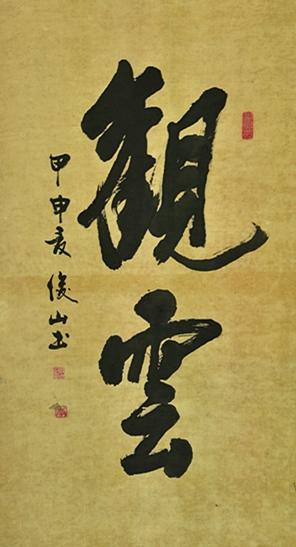 觀雲
甲申夏俊山书